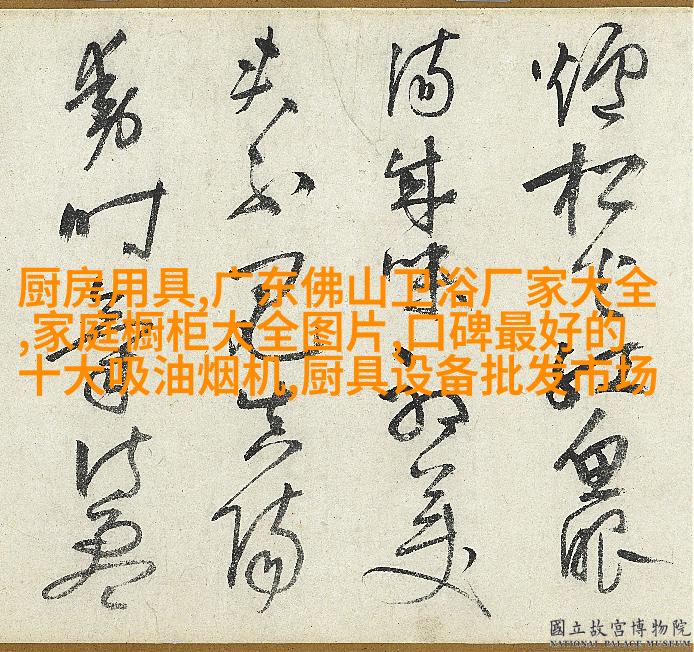 爐松火紅魚眼
湯成味美
夫不真陽
時
厨房用具,广东佛山卫浴厂家大全
,家庭橱柜大全图片,口碑最好的
十大吸油烟机,厨具设备批发市场
國立故宮博物院
NATIONAL PALACE MUSEUM